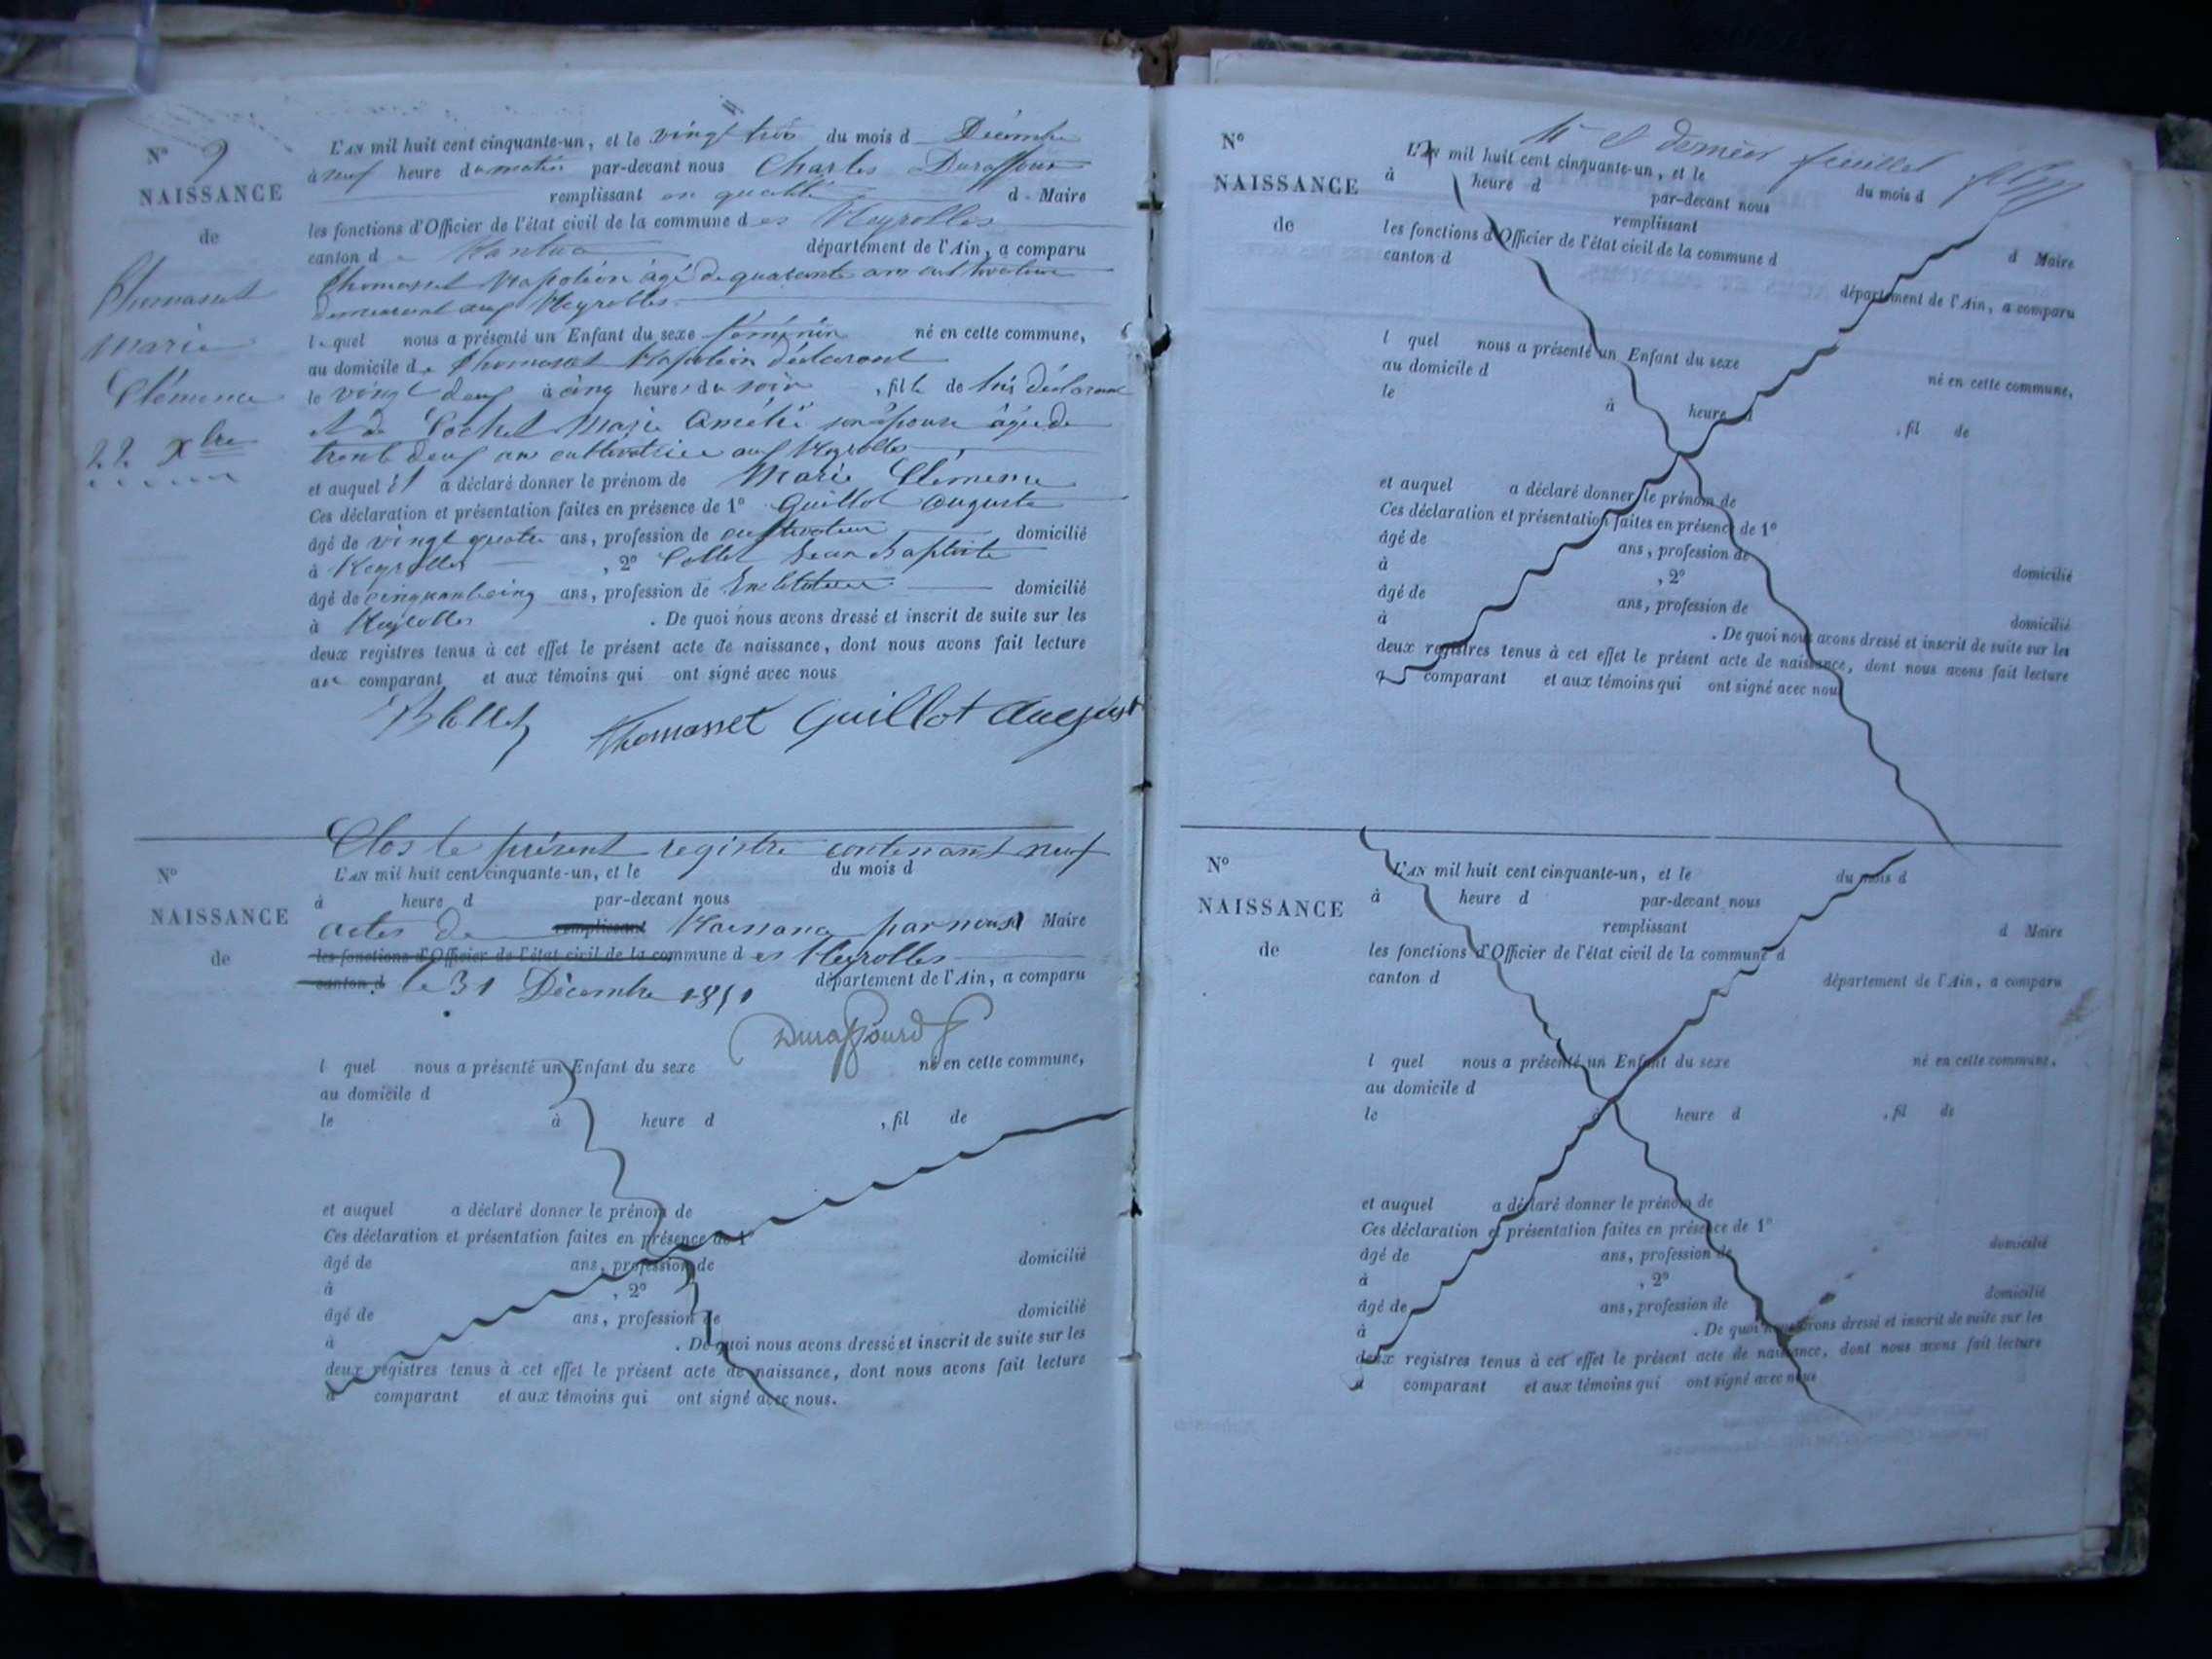 N° 9
NAISSANCE
de
Thomasset
Marie
Clémence
22 Xbre
L'AN mil huit cent cinquante-un, et le vingt trois du mois d Décembre
à neuf heure du matin par-devant nous Charles Duraffour
remplissant en qualité d Maire
les fonctions d'Officier de l'état civil de la commune des Neyrolles
canton de Nantua département de l'Ain, a comparu
Thomasset Napoléon âgé de quarante ans cultivateur
demeurant aux Neyrolles
lequel nous a présenté un Enfant du sexe féminin né en cette commune,
au domicile de Thomasset Napoléon déclarant
le vingt deux à cinq heures du soir, fille de lui déclarant
et de Cochet Marie Amélie son épouse âgée de
trente deux ans cultivatrice aux Neyrolles
et auquel il a déclaré donner le prénom de Marie Clémence
Ces déclaration et présentation faites en présence de 1° Guillot Auguste
âgé de vingt quatre ans, profession de cultivateur domicilié
à Neyrolles, 2° Collet Jean Baptiste
âgé de cinquante cinq ans, profession de Instituteur domicilié
à Neyrolles. De quoi nous avons dressé et inscrit de suite sur les
deux registres tenus à cet effet le présent acte de naissance, dont nous avons fait lecture
au comparant et aux témoins qui ont signé avec nous
Thomasset Guillot Auguste
Clos le présent registre contenant neuf
N°
L'AN mil huit cent cinquante-un, et le du mois d
à heure d par-devant nous
NAISSANCE
actes de remplissant Naissance par nous Maire
de
les fonctions d'Officier de l'état civil de la commune des Neyrolles
canton d le 31 Décembre 1851 département de l'Ain, a comparu
Duraffourd
l quel nous a présenté un Enfant du sexe né en cette commune,
au domicile d
le à heure d , fil de
et auquel a déclaré donner le prénom de
Ces déclaration et présentation faites en présence de 1°
âgé de ans, profession de domicilié
à , 2°
âgé de ans, profession de domicilié
à . De quoi nous avons dressé et inscrit de suite sur les
deux registres tenus à cet effet le présent acte de naissance, dont nous avons fait lecture
a comparant et aux témoins qui ont signé avec nous.
et dernier feuillet
N°
NAISSANCE
de
L'AN mil huit cent cinquante-un, et le du mois d
à heure d par-devant nous
remplissant d Maire
les fonctions d'Officier de l'état civil de la commune d
canton d département de l'Ain, a comparu
l quel nous a présenté un Enfant du sexe né en cette commune,
au domicile d
le à heure d , fil de
et auquel a déclaré donner le prénom de
Ces déclaration et présentation faites en présence de 1°
âgé de ans, profession de domicilié
à , 2°
âgé de ans, profession de domicilié
à . De quoi nous avons dressé et inscrit de suite sur les
deux registres tenus à cet effet le présent acte de naissance, dont nous avons fait lecture
a comparant et aux témoins qui ont signé avec nous
N°
NAISSANCE
de
L'AN mil huit cent cinquante-un, et le du mois d
à heure d par-devant nous
remplissant d Maire
les fonctions d'Officier de l'état civil de la commune d
canton d département de l'Ain, a comparu
l quel nous a présenté un Enfant du sexe né en cette commune,
au domicile d
le à heure d , fil de
et auquel a déclaré donner le prénom de
Ces déclaration et présentation faites en présence de 1°
âgé de ans, profession de domicilié
à , 2°
âgé de ans, profession de domicilié
à . De quoi nous avons dressé et inscrit de suite sur les
deux registres tenus à cet effet le présent acte de naissance, dont nous avons fait lecture
a comparant et aux témoins qui ont signé avec nous